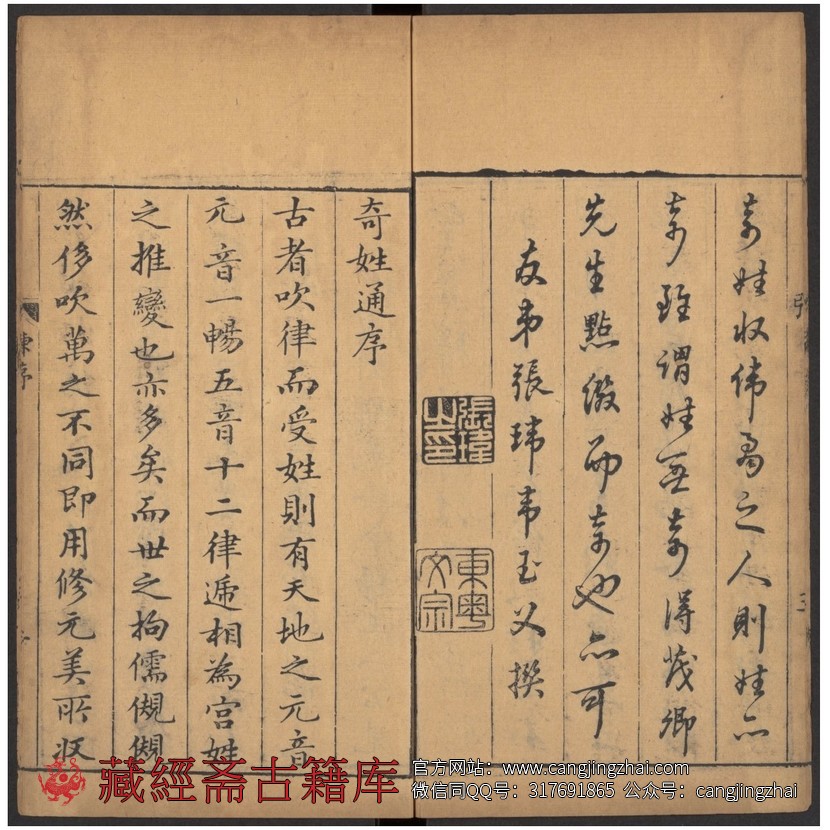 奇姓收偉之人則姓亦
奇雖謂姓無奇得茂卿
先生點綴而奇也亦可
友弟張瑋韋玉父撰
張瑋之印
東粵文宗
奇姓通序
古者吹律而受姓則有天地之元音
元音一暢五音十二律遞相為宮姓
之推變也亦多矣而世之拘儒
然侈吹萬之不同即用修元美所收
陳序
藏經斋古籍库
官方网站：www.cangjingzhai.com
微信同QQ号：317691865 公众号：cangjingzhai